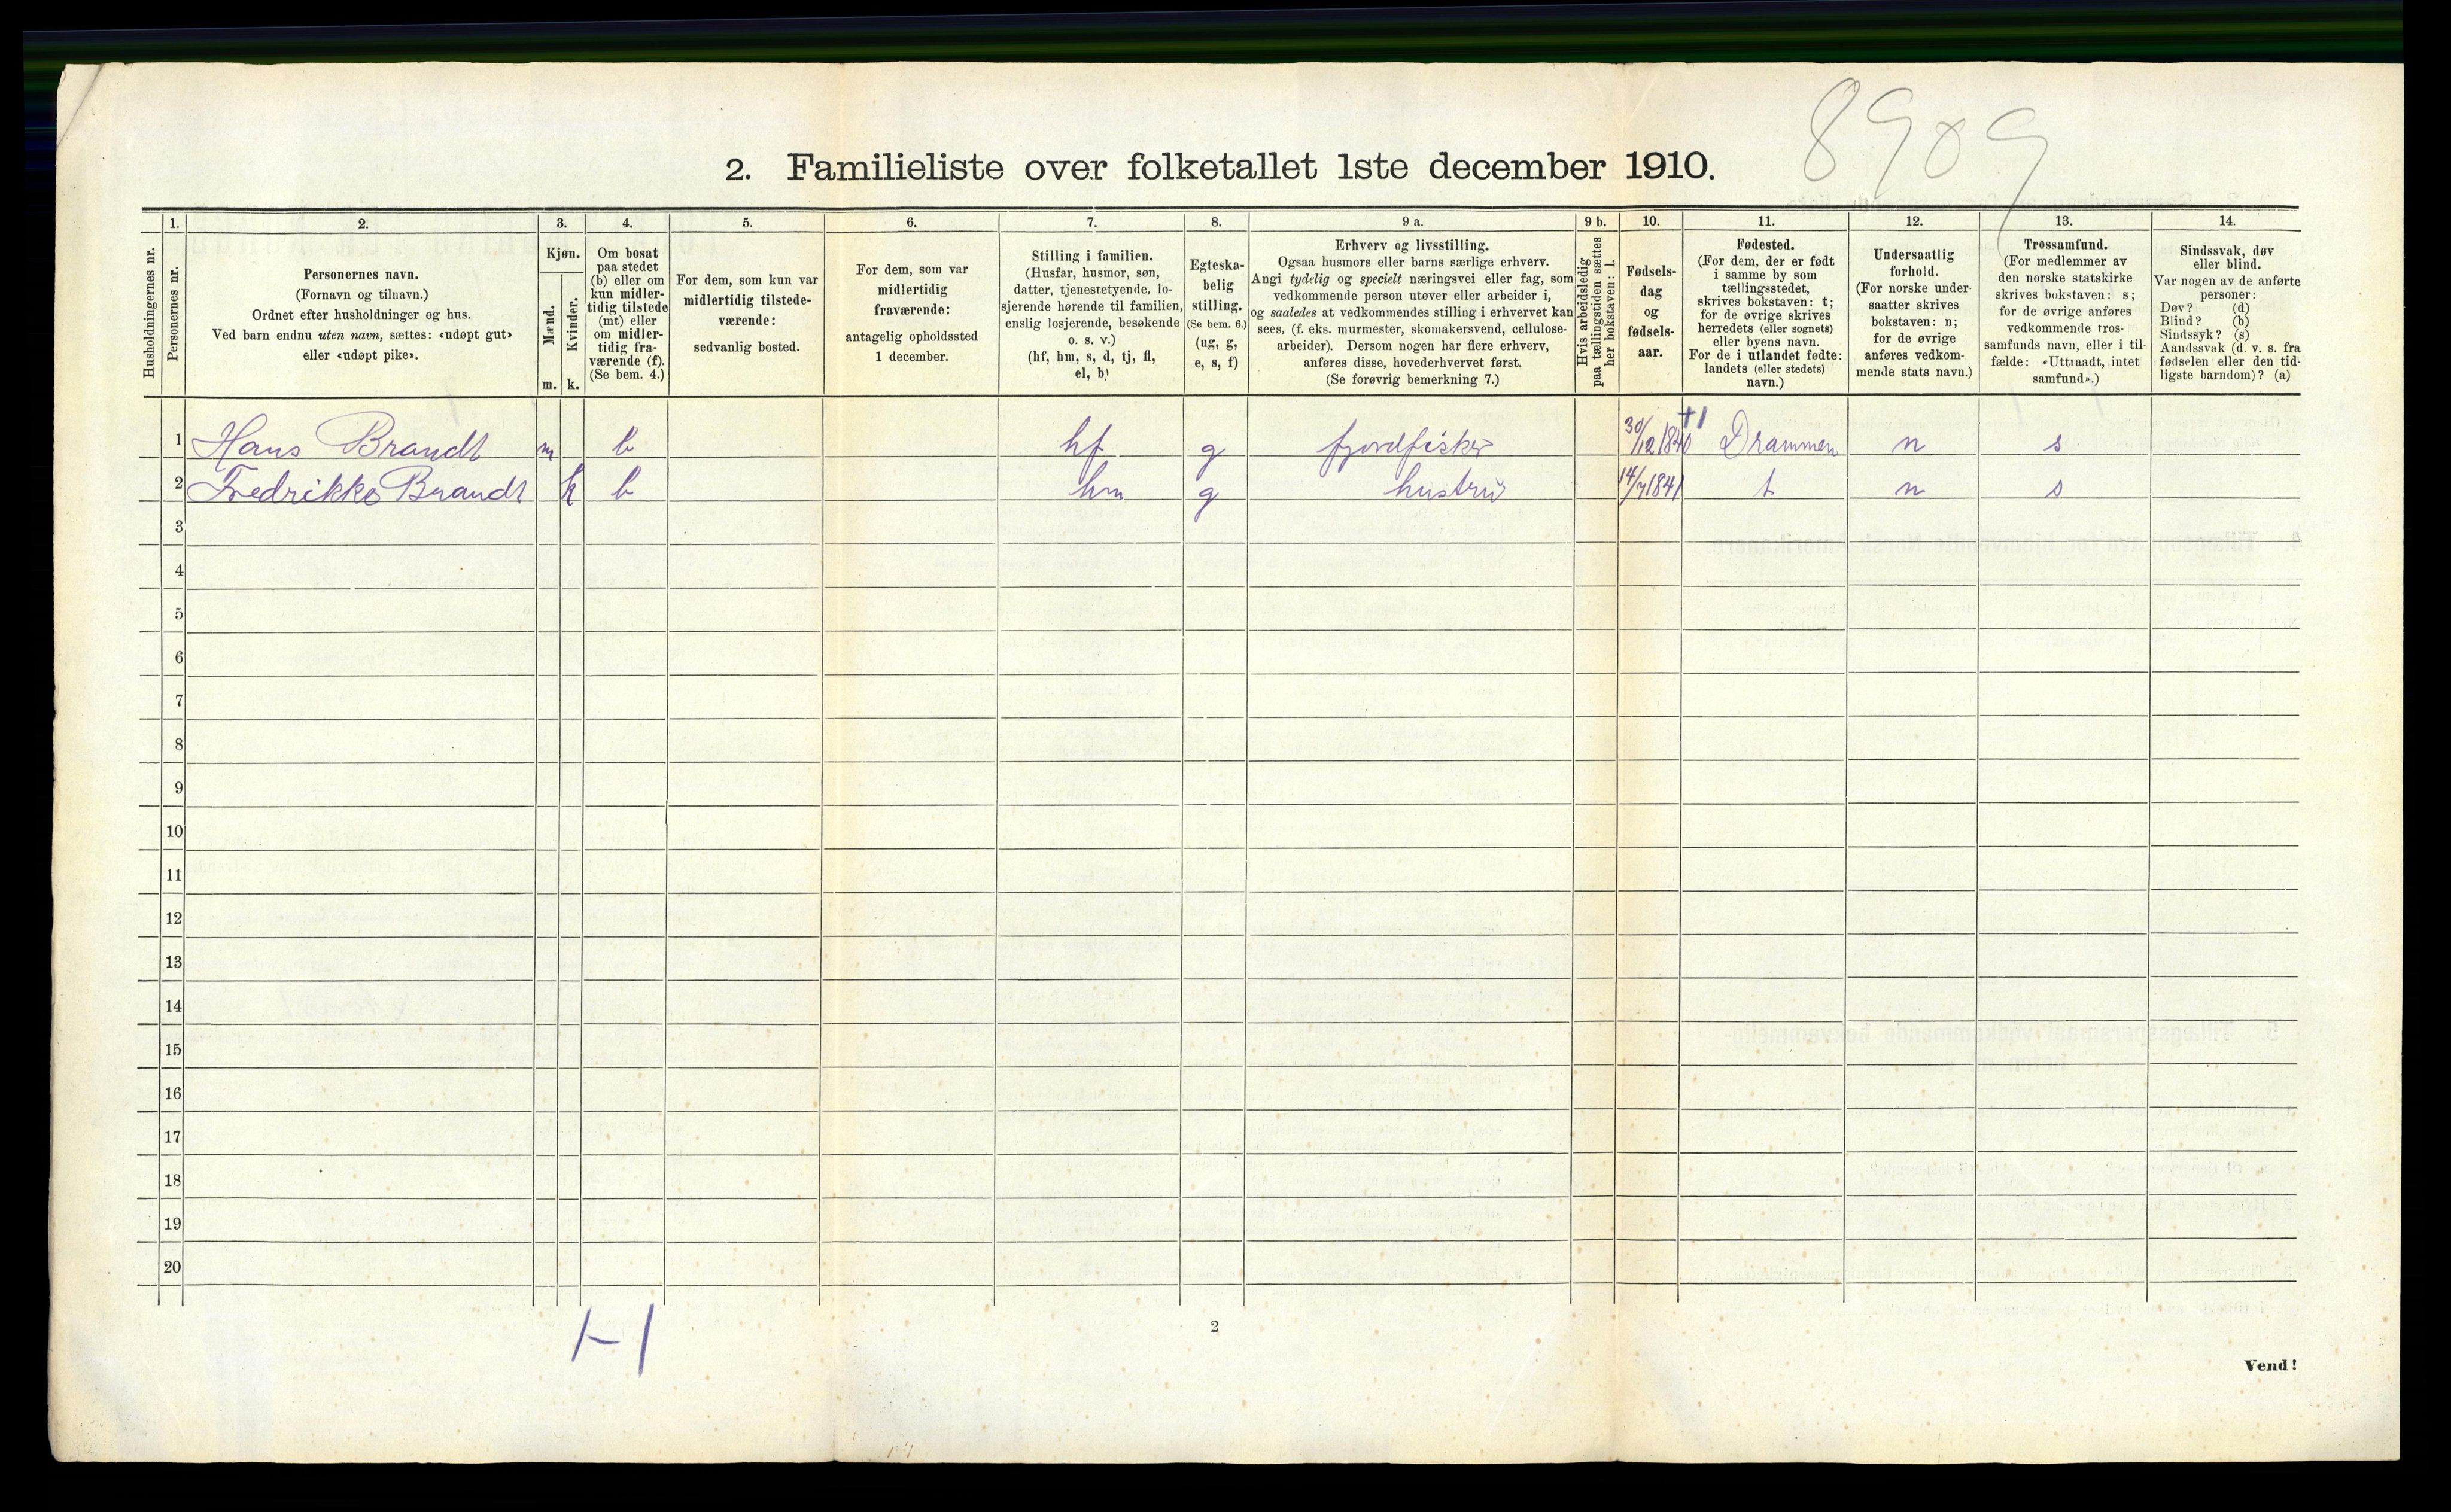 8909
2. Familieliste over folketallet 1ste december 1910.
Husholdningernes nr.
1.
Personernes nr.
2.
Personernes navn.
(Fornavn og tilnavn.)
Ordnet efter husholdninger og hus.
Ved barn endnu uten navn, sættes: «udøpt gut»
eller «udøpt pike».
3.
Kjøn.
Mænd.
m.
Kvinder.
k.
4.
Om bosat
paa stedet
(b) eller om
kun midler-
tidig tilstede
(mt) eller
om midler-
tidig fra-
værende (f).
(Se bem. 4.)
5.
For dem, som kun var
midlertidig tilstede-
værende:
sedvanlig bosted.
6.
For dem, som var
midlertidig
fraværende:
antagelig opholdssted
1 december.
7.
Stilling i familien.
(Husfar, husmor, søn,
datter, tjenestetyende, lo-
sjerende hørende til familien,
enslig losjerende, besøkende
o. s. v.)
(hf, hm, s, d, tj, fl,
el, b)
8.
Egteska-
belig
stilling.
(Se bem. 6.)
(ug, g,
e, s, f)
9 a.
Erhverv og livsstilling.
Ogsaa husmors eller barns særlige erhverv.
Angi tydelig og specielt næringsvei eller fag, som
vedkommende person utøver eller arbeider i,
og saaledes at vedkommendes stilling i erhvervet kan
sees, (f. eks. murmester, skomakersvend, cellulose-
arbeider). Dersom nogen har flere erhverv,
anføres disse, hovederhvervet først.
(Se forøvrig bemerkning 7.)
9 b.
Hvis arbeidsledig
paa tællingstiden sættes
her bokstaven: l.
10.
Fødsels-
dag
og
fødsels-
aar.
11.
Fødested.
(For dem, der er født
i samme by som
tællingsstedet,
skrives bokstaven: t;
for de øvrige skrives
herredets (eller sognets)
eller byens navn.
For de i utlandet fødte:
landets (eller stedets)
navn.)
12.
Undersaatlig
forhold.
(For norske under-
saatter skrives
bokstaven: n;
for de øvrige
anføres vedkom-
mende stats navn.)
13.
Trossamfund.
(For medlemmer av
den norske statskirke
skrives bokstaven: s;
for de øvrige anføres
vedkommende tros-
samfunds navn, eller i til-
fælde: «Uttraadt, intet
samfund».)
14.
Sindssvak, døv
eller blind.
Var nogen av de anførte
personer:
Døv? (d)
Blind? (b)
Sindssyk? (s)
Aandssvak (d. v. s. fra
fødselen eller den tid-
ligste barndom)? (a)
1 Hans Brandt m b hf g fjordfisker 30/12 1840 +1 Drammen n s
2 Fredrikke Brandt k b hm g hustru 14/7 1841 t n s
3
4
5
6
7
8
9
10
11
12
13
14
15
16
17
18
19
20
1-1
2
Vend!